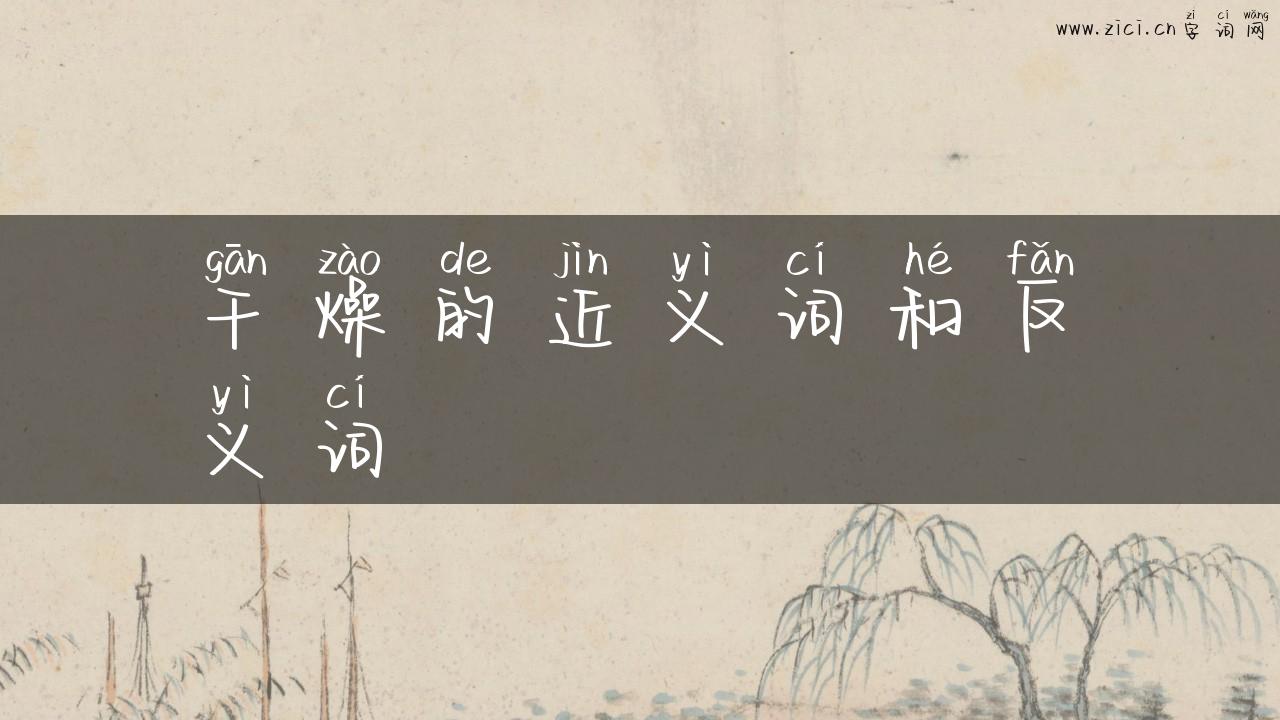 zì cí wǎng
www.zici.cn 字词网
gān zào de jìn yì cí hé fǎn
干燥的近义词和反
yì cí
义词